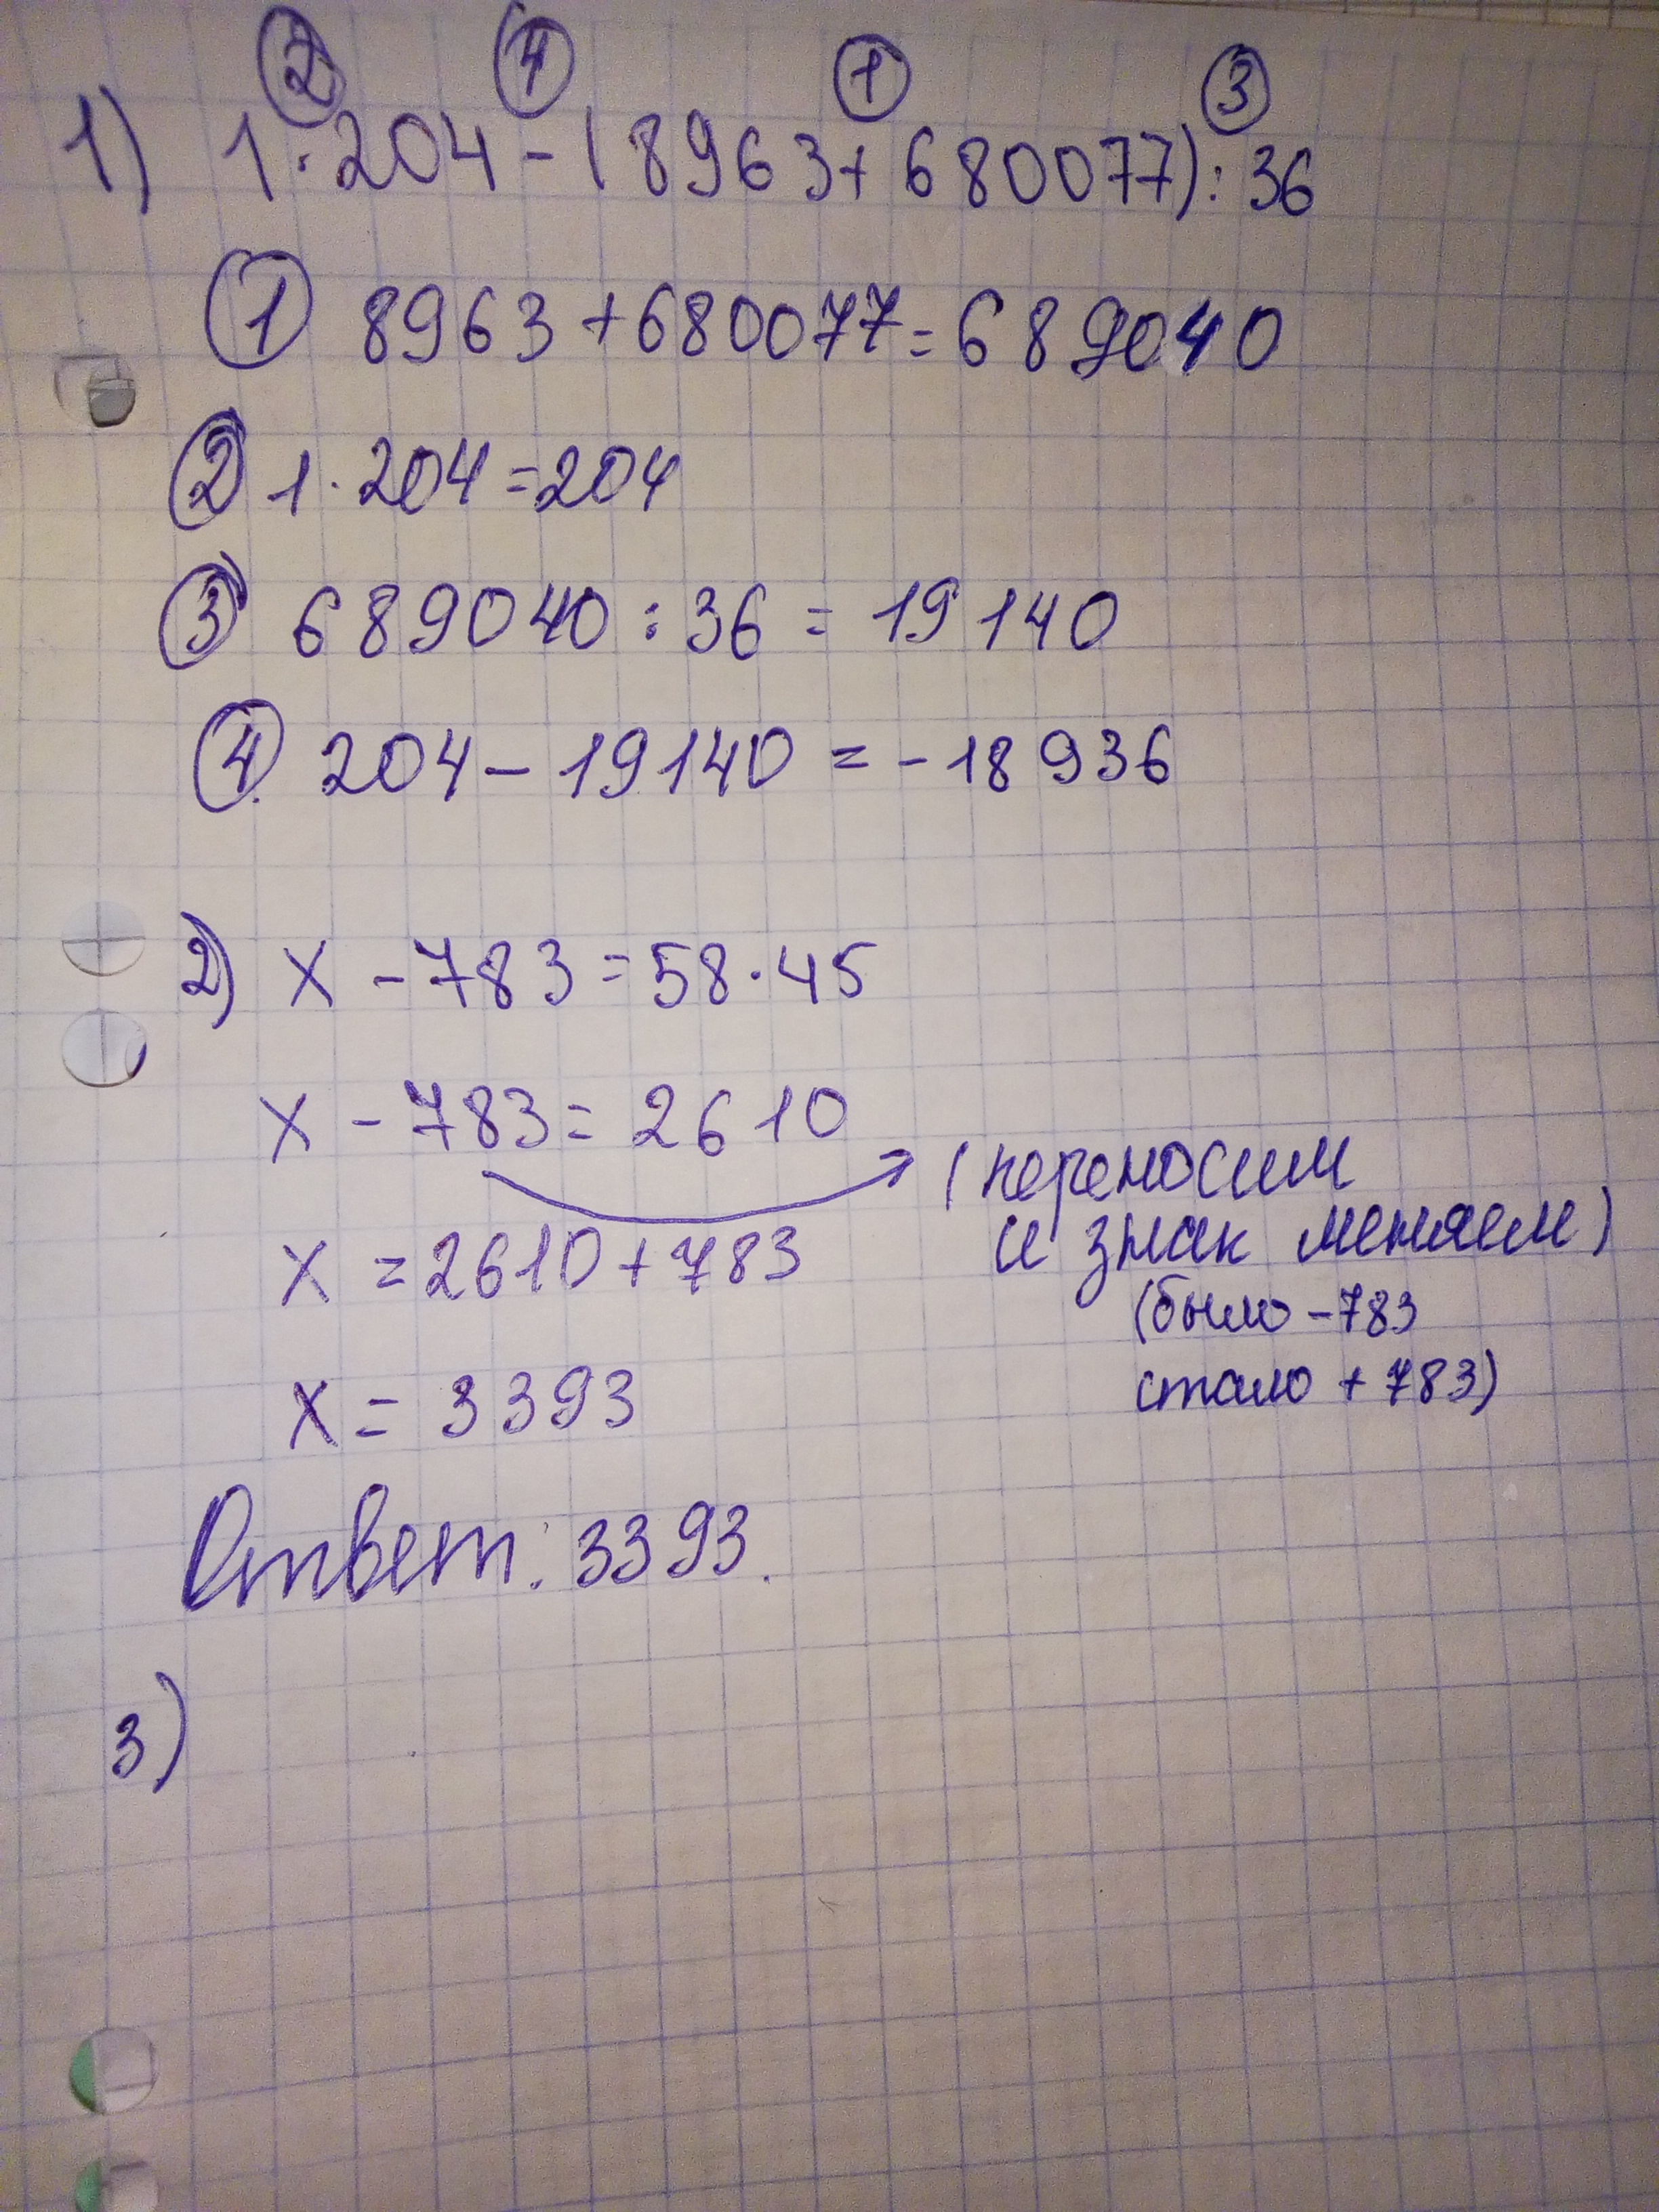 ② ④ ① ③
1) 1·204-(8963+680077):36
① 8963+680077=689040
② 1·204=204
③ 689040:36=19140
④ 204-19140=-18936
2) x-783=58·45
x-783=2610
(переносим
и знак меняем)
x=2610+783
(было -783
стало +783)
x=3393
Ответ: 3393.
3)